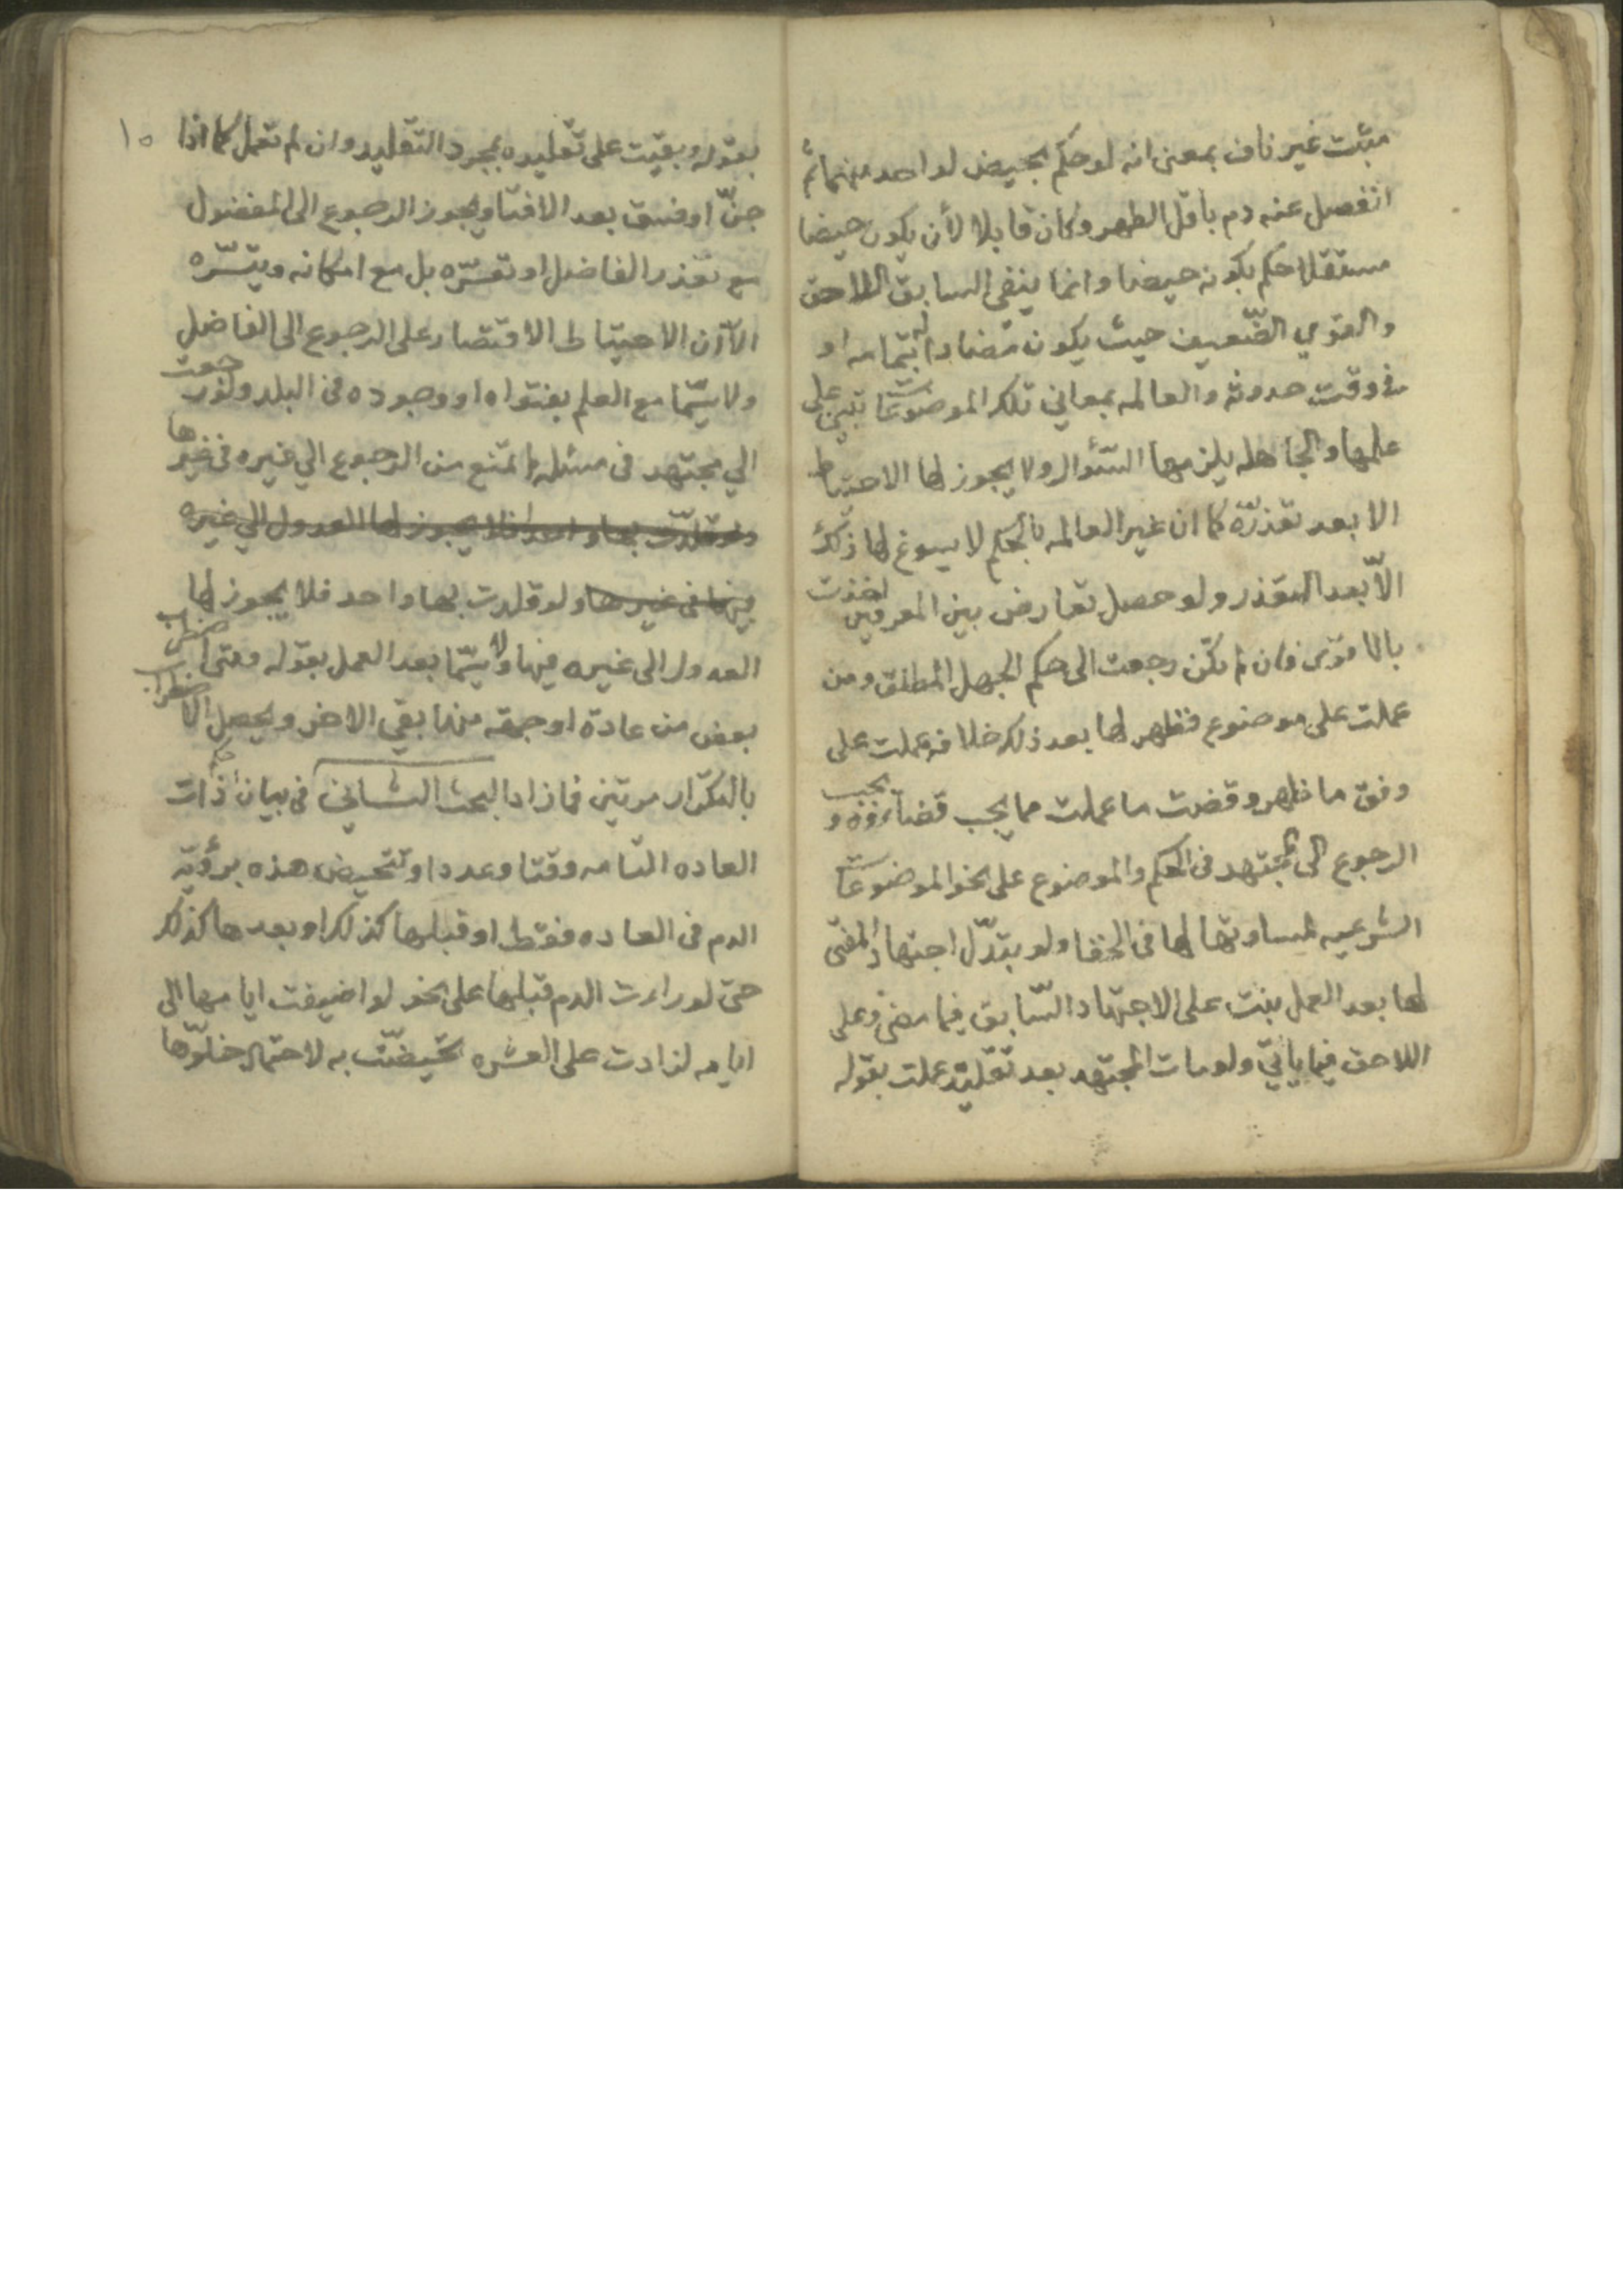 مثبت غير ناف بمعنى انه لو حكم بحيض لواحد منهما ثم
انفصل عنه دم باقل الطهر وكان قابلا لأن يكون حيضا
مستقلا حكم بكونه حيضا وانما ينفى السابق اللاحق
والقوي الضّعيف حيث يكون مضادا له بتمامه او
في وقت حدوثه والعالمه بمعاني تلكر الموضوعات تبني على
علمها والجاهله يلزمها السّئوال ولا يجوز لها الاحتياط
الا بعد تعذّره كما ان غير العالمه بالحكم لا يسوغ لها ذلك
الّا بعد التعذر ولو حصل تعارض بين المعرفين اخذت
بالاقوى فان لم يكن رجعت الى حكم الجهل المطلق ومن
عملت على موضوع فظهر لها بعد ذلك خلافه عملت على
وفق ما ظهر وقضت ما عملت مما يجب قضاءوه و يجب
الرجوع الى المجتهد في الحكم والموضوع على نحو الموضوعات
الشرعيه لمساوتها لها في الخفا ولو بتدّل اجتهاد المفتى
لها بعد العمل بنت على الاجتهاد السّابق فيما مضى وعلى
اللاحق فيما ياتي ولو مات المجتهد بعد تقليده عملت بقوله
١٥
بقوله وبقيت على تقليده بمجرد التّقليد وان لم تعمل كما اذا
جنّ او فسق بعد الافتا ويجوز الرجوع الى المفضول
مع تعذر الفاضل او تعسّره بل مع امكانه ويتسّره
الّا ان الاحتياط الاقتصار على الرجوع الى الفاضل
ولا سيّما مع العلم بفتواه او وجوده في البلد ولو رجعت
الي مجتهد في مسئله لم تمنع من الرجوع الي غيره في غيرها
ولو قلدّت بها واحدا فلا يجوز لها العدول الي غيره
فيها في غيرها ولو قلدت بها واحد فلا يجوز لها
العدول الى غيره فيها ولا سيّما بعد العمل بقوله ومتى اضطرب
بعض من عادة او جهة منها بقي الاخر ويحصل الاضطراب
بالتكرّار مرتين فما زاد البحث الثاني في بيان احكام ذات
العاده التّامه وقتا وعددا وتتحيض هذه برؤية
الدم في العاده فقط او قبلها كذلكر او بعدها كذلكر
حتى لو راءت الدم قبلها على نحو لو اضيفت ايامها الى
ايامه لزادت على العشره تحيّضت به لاحتمال خلوّها